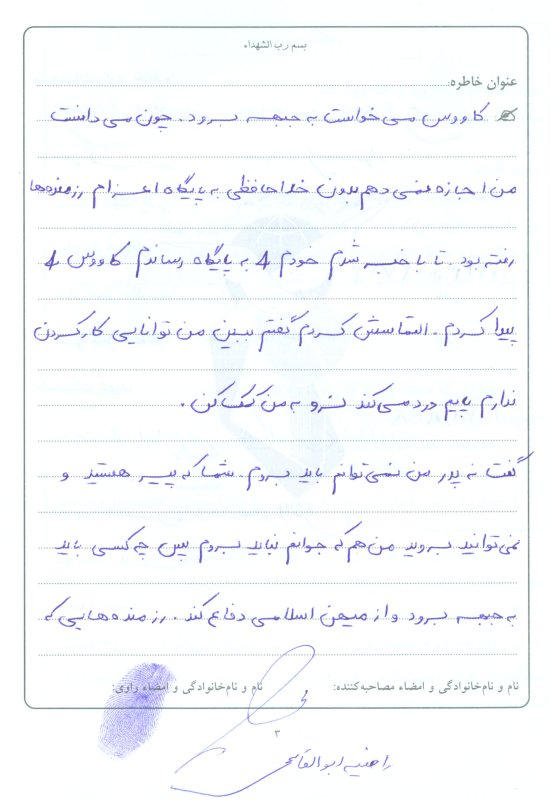 بسم رب الشهداء
عنوان خاطره:
کاووس می خواست به جبهه برود. چون می دانست
من اجازه نمی دهم بدون خداحافظی به پایگاه اعزام رزمنده‌ها
رفته بود. تا با خبر شدم خودم را به پایگاه رساندم کاووس را
پیدا کردم. التماسش کردم گفتم ببین من توانایی کار کردن
ندارم پایم درد می کند نرو به من کمک کن.
گفت نه پدر من نمی توانم باید بروم. شما که پیر هستید و
نمی توانید بروید من هم که جوانم نباید بروم پس چه کسی باید
به جبهه برود و از میهن اسلامی دفاع کند. رزمنده هایی که
نام و نام‌خانوادگی و امضاء مصاحبه‌کننده:
نام و نام‌خانوادگی و امضاء راوی:
۳
راضیه ابوالقاسمی